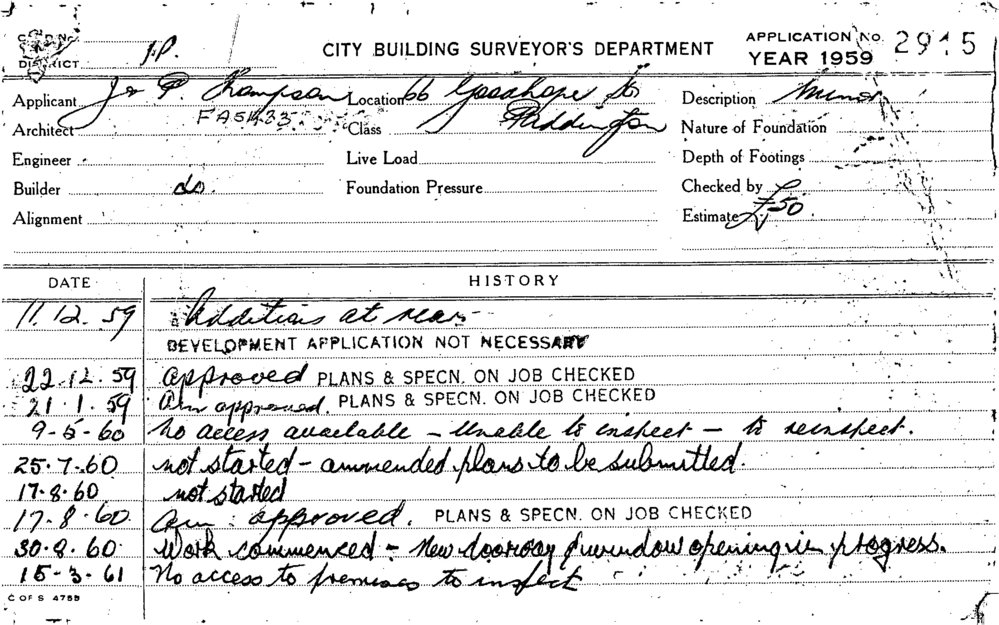 DISTRICT J.P.
CITY BUILDING SURVEYOR'S DEPARTMENT
APPLICATION No. 2915
YEAR 1959
Applicant J & P. Thompson
Location 66 Goodhope St
Paddington
Description Minor
Architect FA5433
Class
Nature of Foundation
Engineer
Live Load
Depth of Footings
Builder do.
Foundation Pressure
Checked by
Alignment
Estimate £50
DATE HISTORY
11.12.59 Additions at rear
DEVELOPMENT APPLICATION NOT NECESSARY
22.12.59 Approved PLANS & SPECN. ON JOB CHECKED
21.1.59 Am approved. PLANS & SPECN. ON JOB CHECKED
9-5-60 No access available - Unable to inspect - to reinspect.
25.7.60 not started - ammended plans to be submitted.
17.8.60 not started
17.8.60 Am: approved. PLANS & SPECN. ON JOB CHECKED
30.8.60 Work commenced - New doorway & window opening in progress.
15-3-61 No access to premises to inspect
C OF S 4755